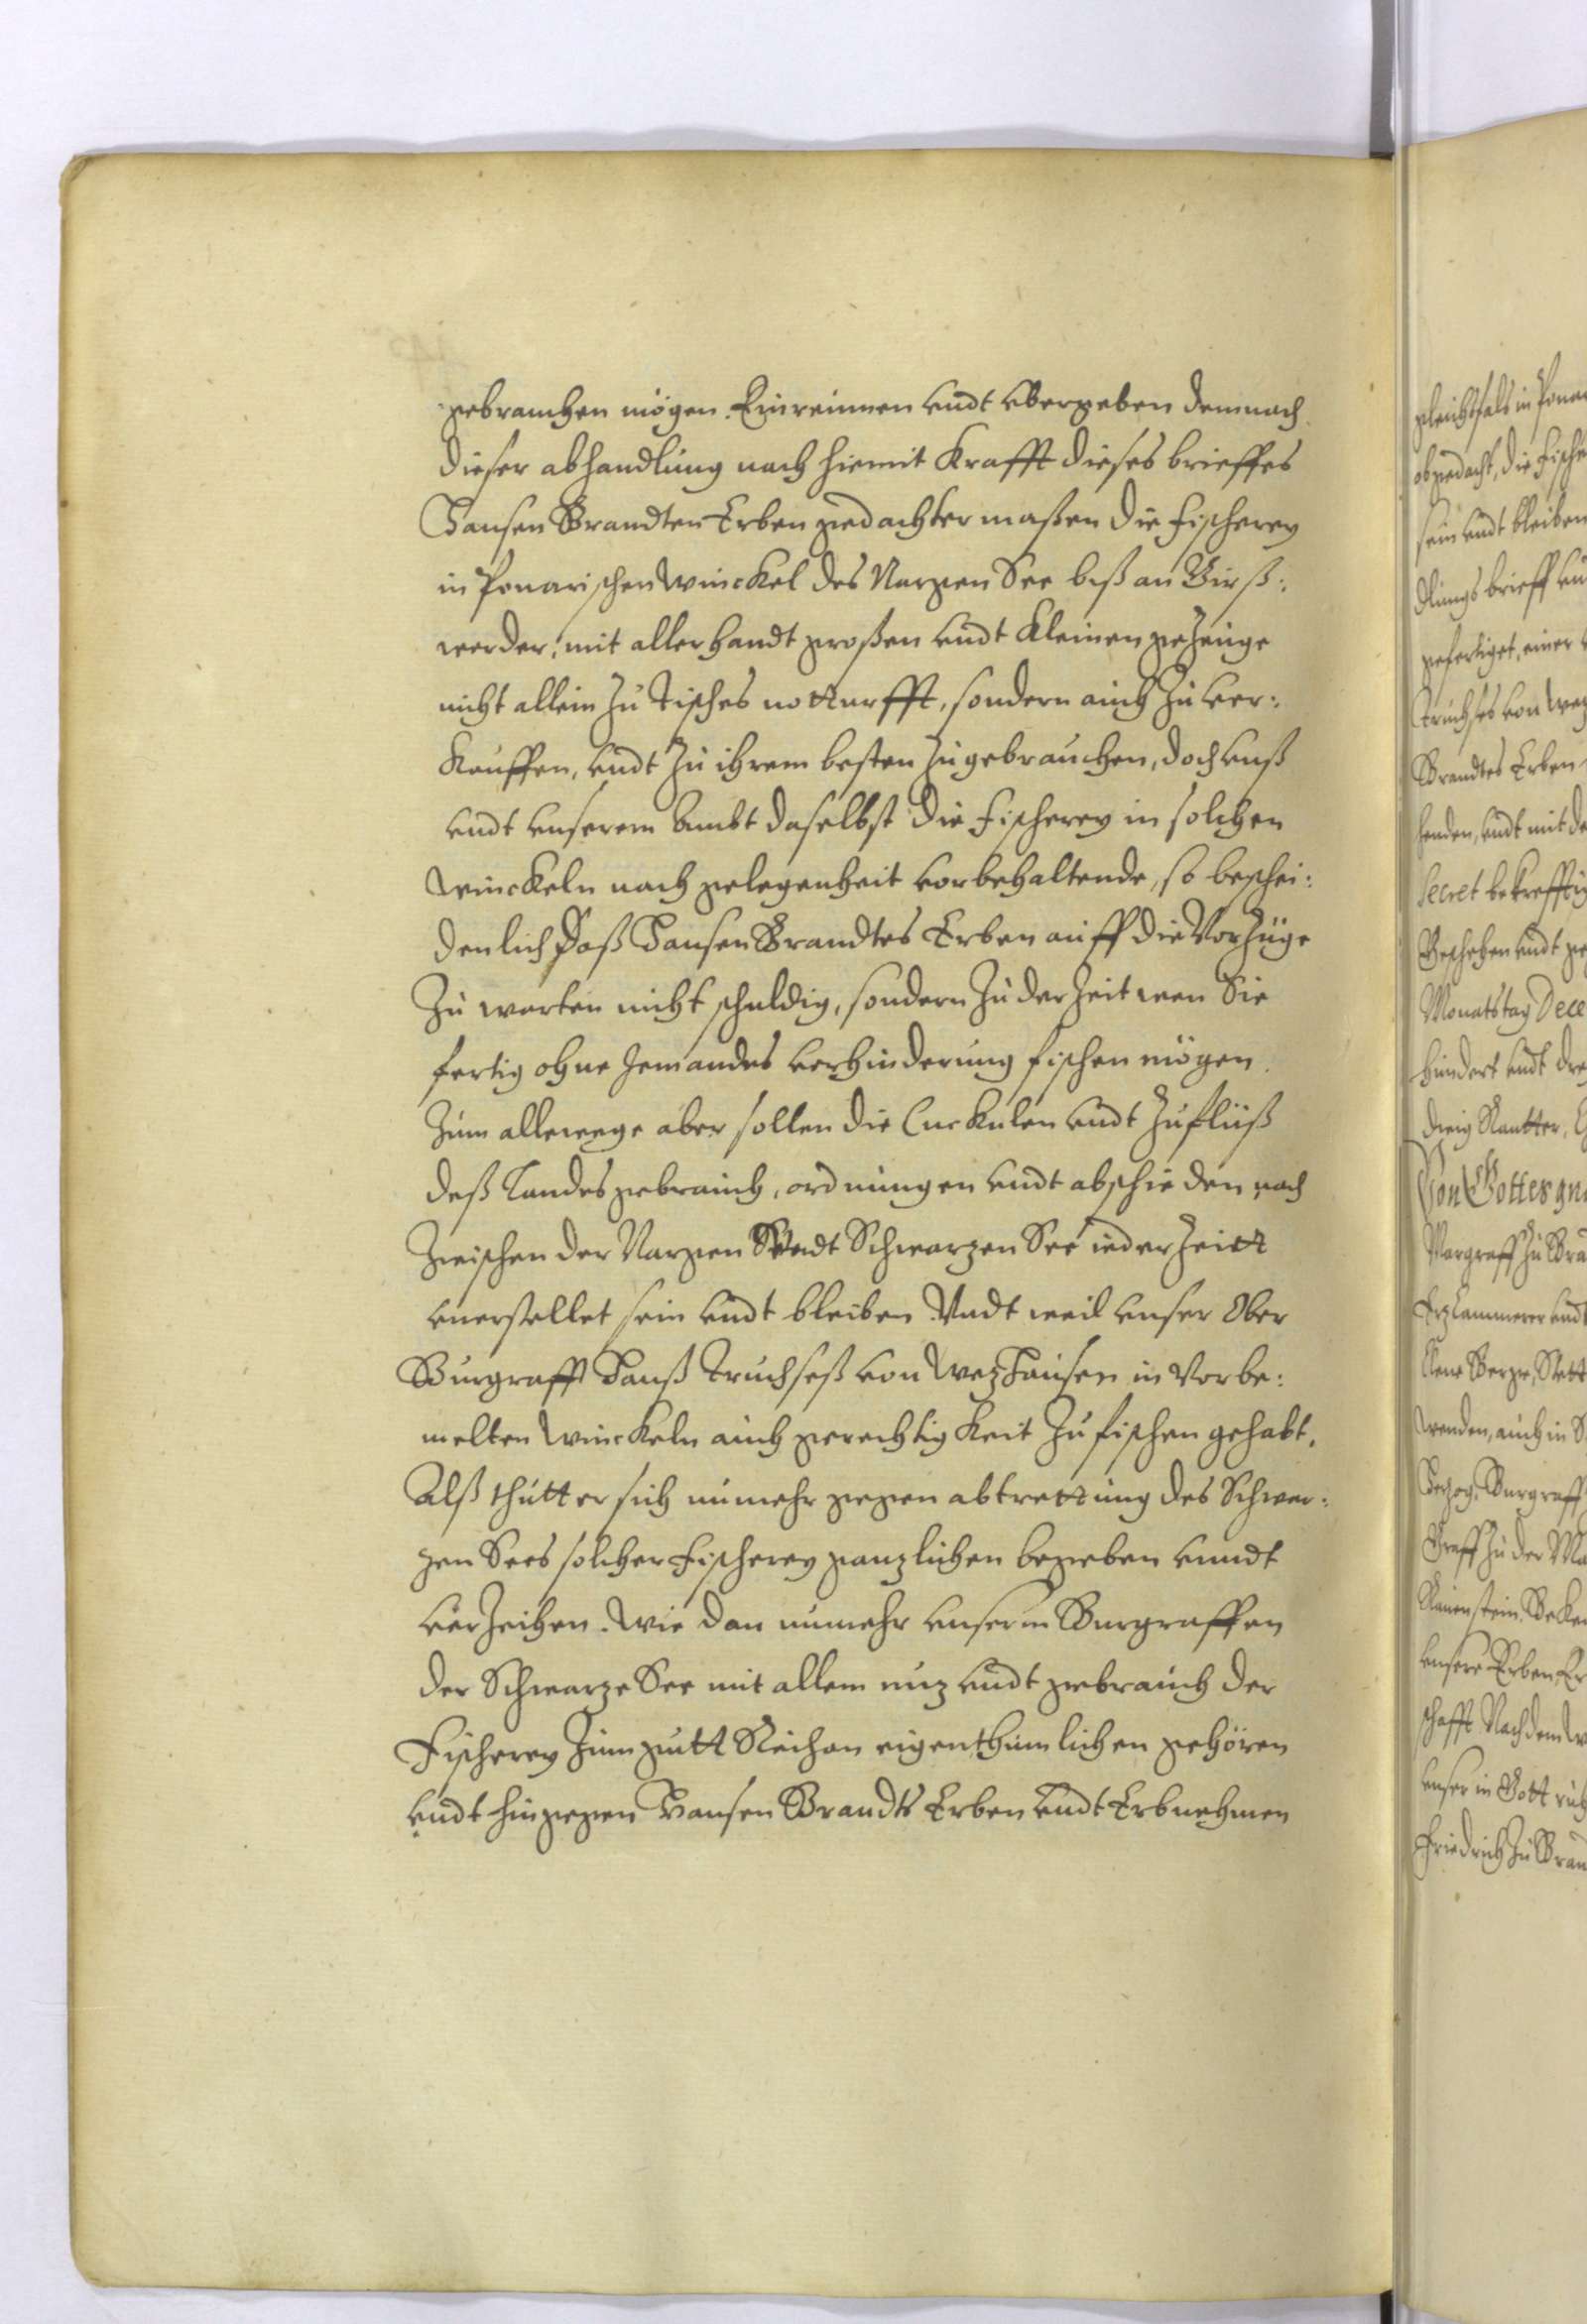 gebrauchen mögen. Einreimen vndt vbergeben demnach
dieser abhandlung nach hiemit Krafft dieses brieffes
Hansen Brandten Erben gedachter maßen die fischerey
in Ponarischen winckel des Narzen See biß an Birß:
werder, mit allerhandt großen vndt Kleinen gezeuge
nicht allein zu Tisches notturfft, sondern auch zu ver:
Kauffen, vndt zu ihrem besten zugebrauchen, doch vnß
vndt vnserem Ambt daselbst die fischerey in solchen
winckeln nach gelegenheit vorbehaltende, so beschei:
denlich daß Hansen Brandtes Erben auff die Vorzüge
zu warten nicht schuldig, sondern zu der Zeit wen Sie
fertig ohne Jemandes verhinderung fischen mögen.
Zum allewege aber sollen die vndt Zufluß
deß Landes gebrauch, ordnungen vndt abschieden nach
zwischen der Narzen vndt Schwarzen See iederzeitt
vnerstellet sein vndt bleiben. Vndt weil vnser Ober
Burgraff Hanß Truchseß von Wezhausen in Vorbe:
melten winckeln auch gerechtigkeit zu fischen gehabt.
Alß thutt er sich numehr gegen abtrettung des Schwar:
zen Sees solcher fischerey ganzlichen begeben vundt
verzeihen. Wie dan numehr vnserm Burgraffen
der Schwarze See mit allem nuz vndt gebrauch der
Fischerey zum gutt eigenthumlichen gehören
vndt hingegen Hansen Brandts Erben vndt Erbnehmen
gleichsfals in
obgedacht, die
sein vndt bleiben
brieff
gefertiget, einer
Truchses von
Brandtes Erben
henden, vndt mit
Secret bekrefftig
Geschehen vndt
Monatstag Dece
hundert vndt
Von Gottes gn
Margraff zu Bra
ErzCammerer vndt
wenden, auch in
Herzog, Burgraff
Graff zu der Ma
vnsere Erben
schafft Nachdem
vnser in Gott
Friedrich zu Bran